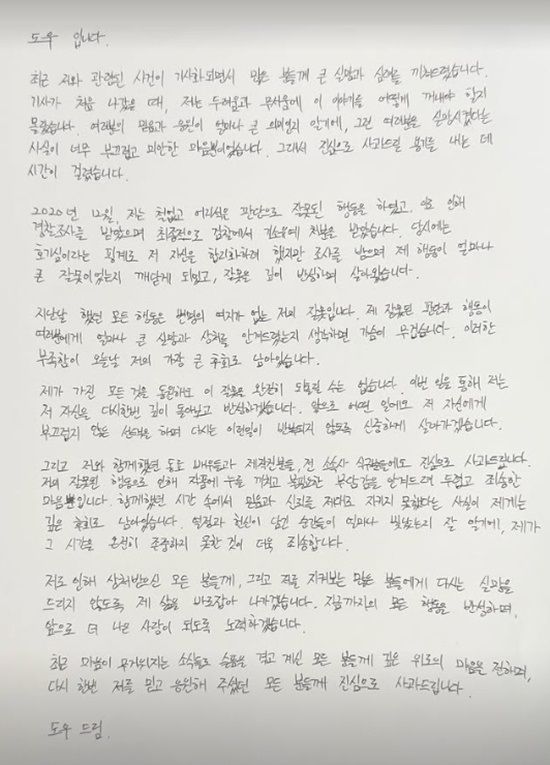 도우 입니다.
최근 저와 관련된 사건이 기사화되면서 많은 분들께 큰 실망과 심려를 끼쳐드렸습니다.
기사가 처음 나갔을 때, 저는 두려움과 무서움에 이 이야기를 어떻게 꺼내야 할지
몰랐습니다. 여러분의 믿음과 응원이 얼마나 큰 의미인지 알기에, 그런 여러분을 실망시켰다는
사실이 너무 부끄럽고 미안한 마음뿐이었습니다. 그래서 진심으로 사과드릴 용기를 내는 데
시간이 걸렸습니다.
2020년 12월, 저는 철없고 어리석은 판단으로 잘못된 행동을 하였고, 이로 인해
경찰조사를 받았으며 최종적으로 검찰에서 기소유예 처분을 받았습니다. 당시에는
호기심이라는 핑계로 저 자신을 합리화하려 했지만 조사를 받으며 제 행동이 얼마나
큰 잘못이었는지 깨닫게 되었고, 잘못을 깊이 반성하며 살아왔습니다.
지난날 했던 모든 행동은 변명의 여지가 없는 저의 잘못입니다. 제 잘못된 판단과 행동이
여러분에게 얼마나 큰 실망과 상처를 안겨드렸는지 생각하면 가슴이 무겁습니다. 이러한
부족함이 오늘날 저의 가장 큰 후회로 남아있습니다.
제가 가진 모든 것을 동원해도 이 잘못을 완전히 되돌릴 수는 없습니다. 이번 일을 통해 저는
저 자신을 다시한번 깊이 돌아보고 반성하겠습니다. 앞으로 어떤 일에도 저 자신에게
부끄럽지 않은 선택을 하며 다시는 이런일이 반복되지 않도록 신중하게 살아가겠습니다.
그리고 저와 함께했던 동료 배우들과 제작진분들, 전 소속사 식구분들에도 진심으로 사과드립니다.
저의 잘못된 행동으로 인해 작품에 누를 끼치고 불필요한 부담감을 안겨드려 무겁고 죄송한
마음뿐입니다. 함께했던 시간 속에서 믿음과 신뢰를 제대로 지키지 못했다는 사실이 제게는
깊은 후회로 남아있습니다. 열정과 헌신이 담긴 순간들이 얼마나 빛났는지 잘 알기에, 제가
그 시간을 온전히 존중하지 못한 것이 더욱 죄송합니다.
저로 인해 상처받으신 모든 분들께, 그리고 저를 지켜보는 많은 분들에게 다시는 실망을
드리지 않도록 제 삶을 바로잡아 나가겠습니다. 지금까지의 모든 행동을 반성하며,
앞으로 더 나은 사람이 되도록 노력하겠습니다.
최근 마음이 무거워지는 소식들로 슬픔을 겪고 계신 모든 분들께 깊은 위로의 마음을 전하며,
다시 한번 저를 믿고 응원해 주셨던 모든 분들께 진심으로 사과드립니다.
도우 드림.